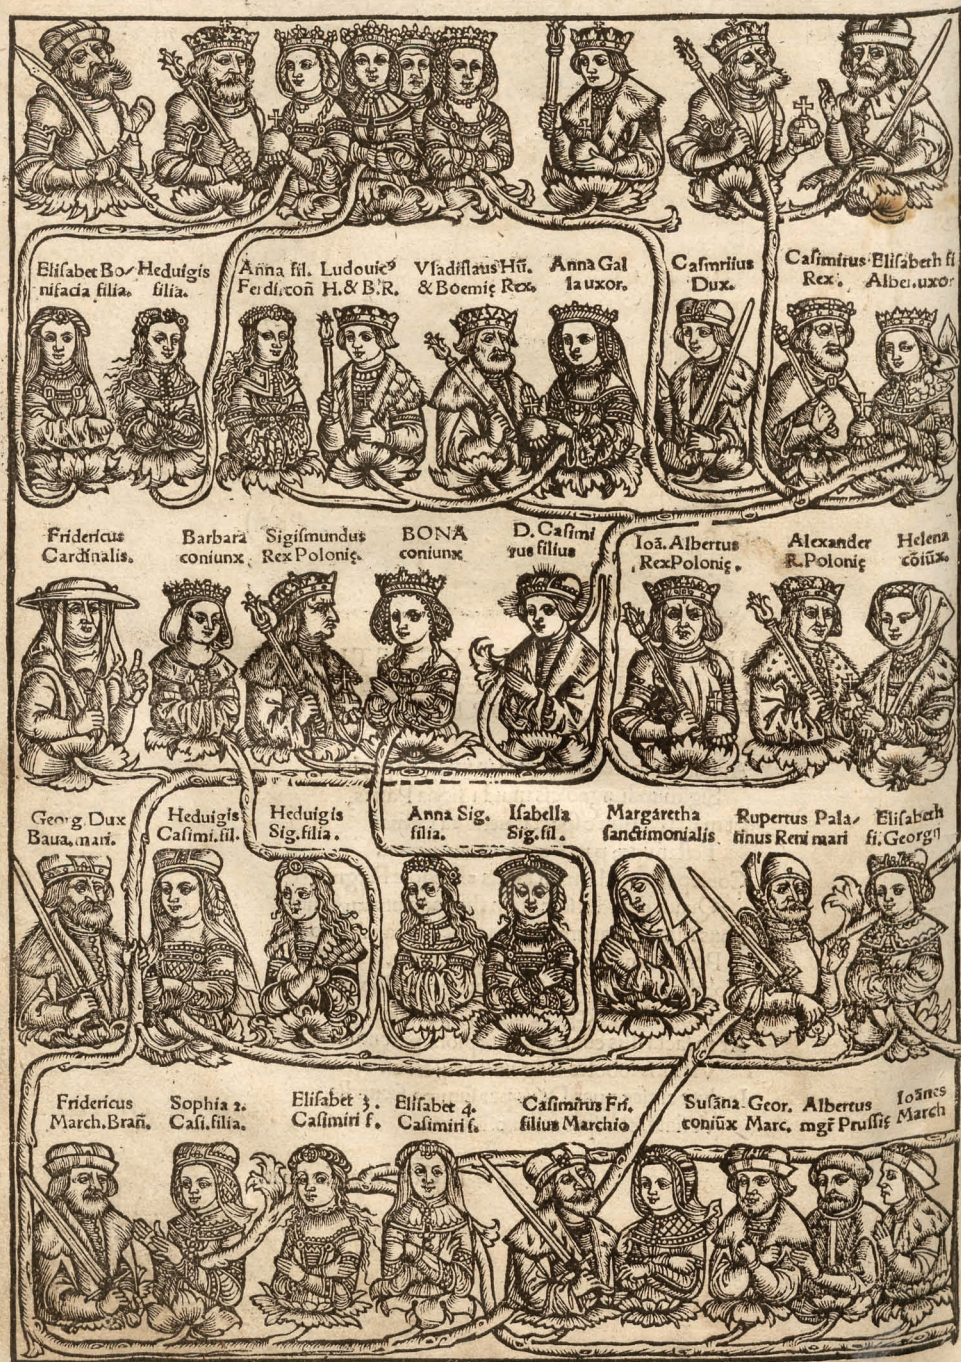 Elisabet Bo⸗
nifacia filia.
Heduigis
filia.
Anna fil.
Ferdi. coñ
Ludouicꝰ
H. & B. R.
Vladislaus Hū.
& Boemię Rex.
Anna Gal
la uxor.
Casimirus
Rex.
Elisabeth fi
Alber. uxor
Dux.
Fridericus
Cardinalis.
Barbara
coniunx
Sigismundus
Rex Polonię.
BONA
coniunx
D. Casimi
rus filius
Ioā. Albertus
Rex Polonię.
Alexander
R. Polonię
Helena
cōiūx.
Georg. Dux
Baua. mari.
Heduigis
Casimi. fil.
Heduigis
Sig. filia.
Anna Sig.
filia.
Isabella
Sig. fil.
Margaretha
sanctimonialis
Rupertus Pala⸗
tinus Reni mari
Elisabeth
fi. Georgij
Fridericus
March. Brañ.
Sophia 2.
Casi. filia.
Elisabet 3.
Casimiri f.
Elisabet 4.
Casimiri f.
Casimirus Fri.
filius Marchio
Susāna
coniūx
Geor.
Marc.
Albertus
mgr̃ Prussię
Ioānes
March